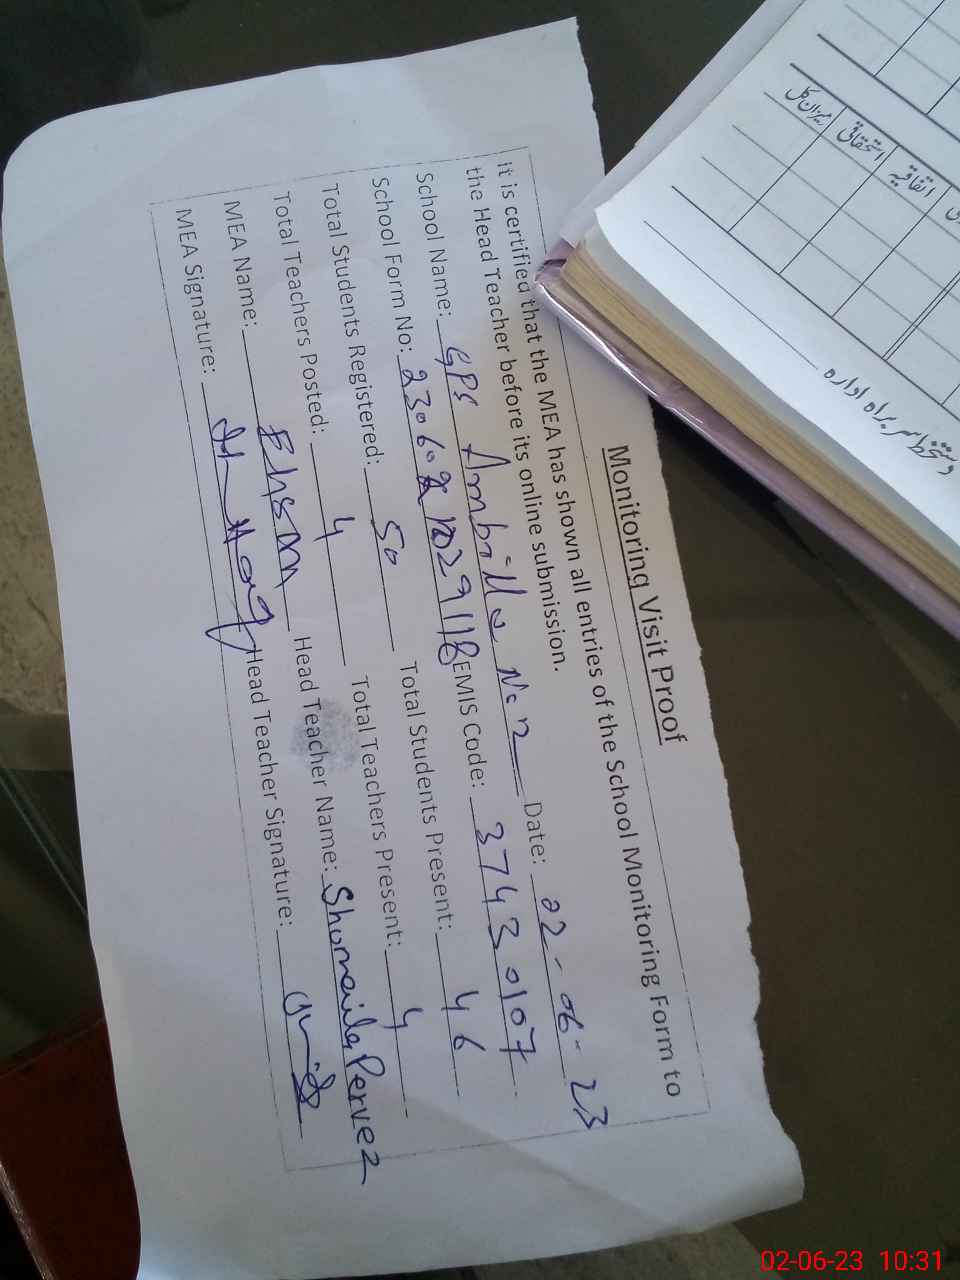 Monitoring Visit Proof
It is certified that the MEA has shown all entries of the School Monitoring Form to
the Head Teacher before its online submission.
School Name: GPS Ambrilla No 2 Date: 02-06-23
School Form No: EMIS Code: 37430107
Total Students Registered: 50 Total Students Present: 46
Total Teachers Posted: 4 Total Teachers Present: 4
MEA Name: Head Teacher Name: Shumaila Pervez
MEA Signature: Head Teacher Signature:
میزان کل
استحقاقی
اتفاقیہ
دستخط سربراہ ادارہ
02-06-23 10:31